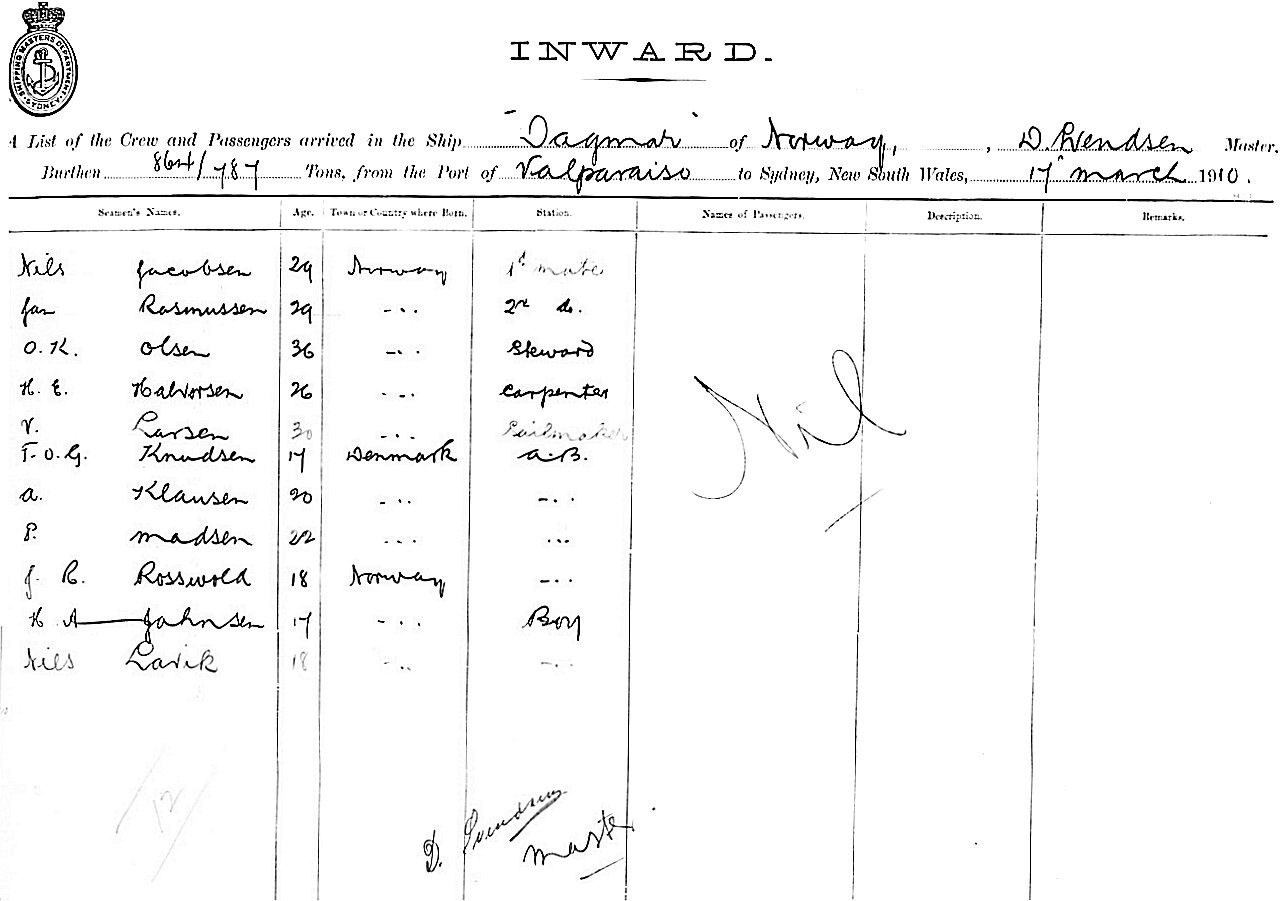 SHIPPING MASTERS DEPARTMENT
SYDNEY
INWARD.
A List of the Crew and Passengers arrived in the Ship "Dagmar" of Norway, , D. Svendsen Master,
Burthen 864/787 Tons, from the Port of Valparaiso to Sydney, New South Wales, 17 March 1910.
Seamen's Names. Age. Town or Country where Born. Station. Names of Passengers. Description. Remarks.
Nils Jacobsen 29 Norway 1st mate
Jan Rasmussen 29 - .. 2nd do.
O. K. Olsen 36 - .. Steward
H. E. Halvorsen 26 - .. Carpenter
V. Larsen 30 - .. Sailmaker
F. O. G. Knudsen 17 Denmark A.B.
A. Klausen 20 - .. - ..
P. Madsen 22 - .. - ..
J. R. Rosswold 18 Norway - ..
H A Johnsen 17 - .. Boy
Nils Lavik 18 - .. - ..
Nil
/12/
D. Svendsen
Master